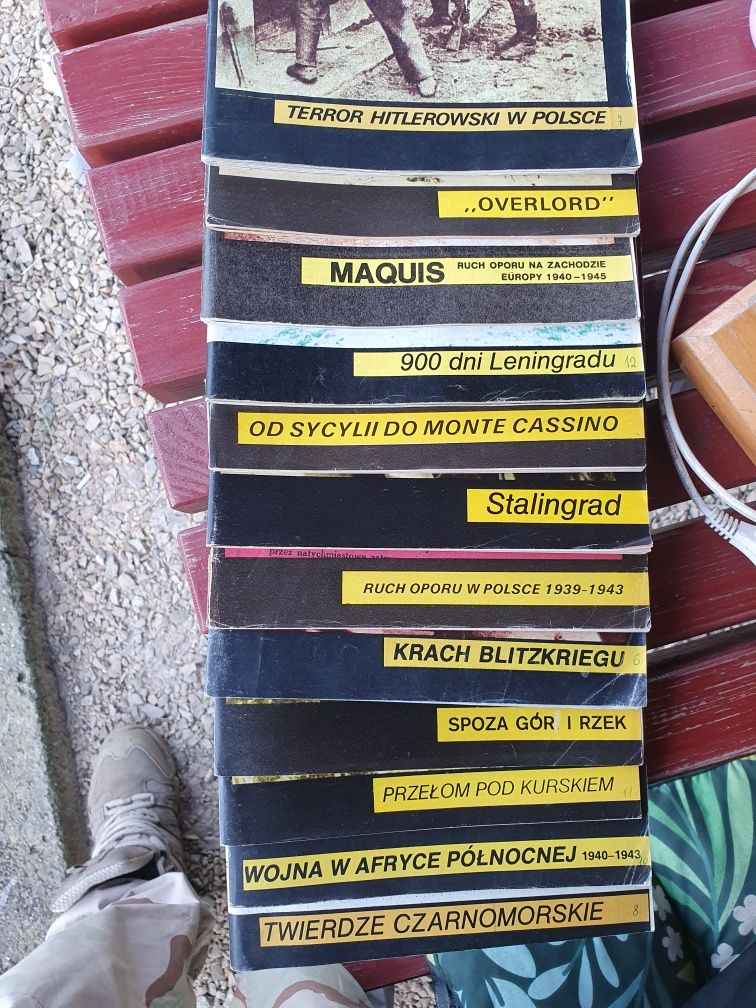 TERROR HITLEROWSKI W POLSCE
,,OVERLORD''
MAQUIS RUCH OPORU NA ZACHODZIE
EUROPY 1940-1945
900 dni Leningradu 12
OD SYCYLII DO MONTE CASSINO
Stalingrad
przez natychmiastowe
RUCH OPORU W POLSCE 1939-1943
KRACH BLITZKRIEGU 6
SPOZA GÓR I RZEK
PRZEŁOM POD KURSKIEM 11
WOJNA W AFRYCE PÓŁNOCNEJ 1940-1943
TWIERDZE CZARNOMORSKIE 8